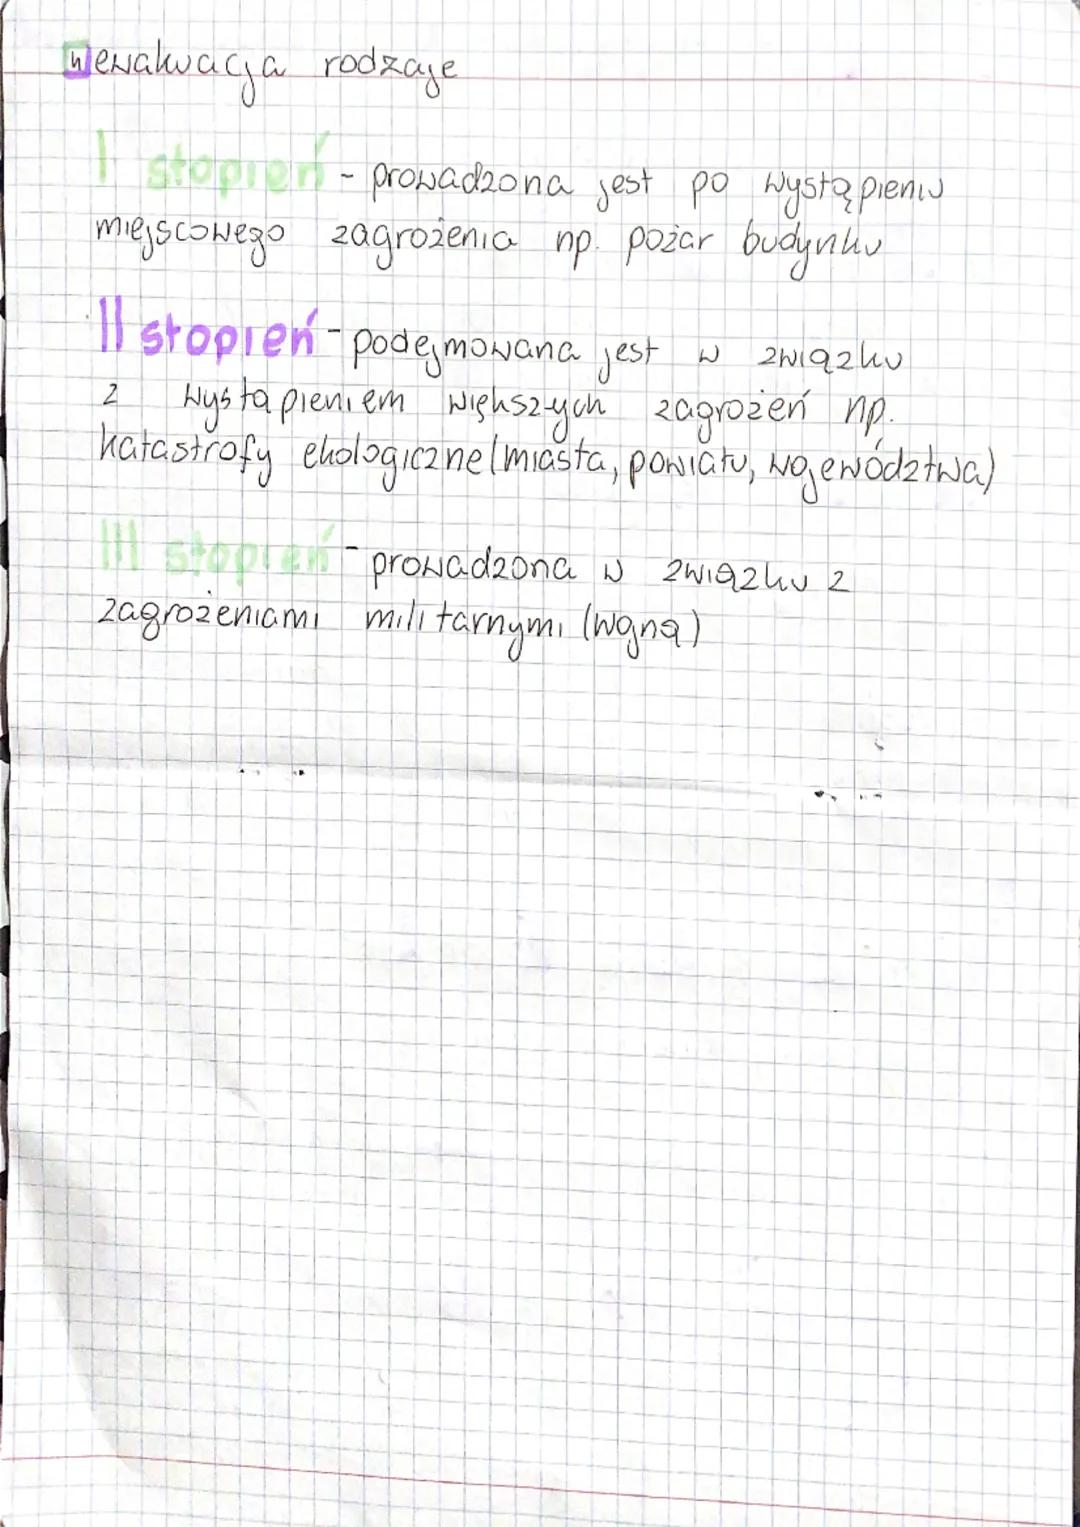 ewakuacja rodzaje
I stopień - prowadzona jest po wystąpieniu
miejscowego zagrożenia np. pożar budynku
II stopień - podejmowana jest w związku
z wystąpieniem większych zagrożeń np.
katastrofy ekologiczne (miasta, powiatu, województwa)
III stopień - prowadzona w związku z
zagrożeniami militarnymi (wojną)